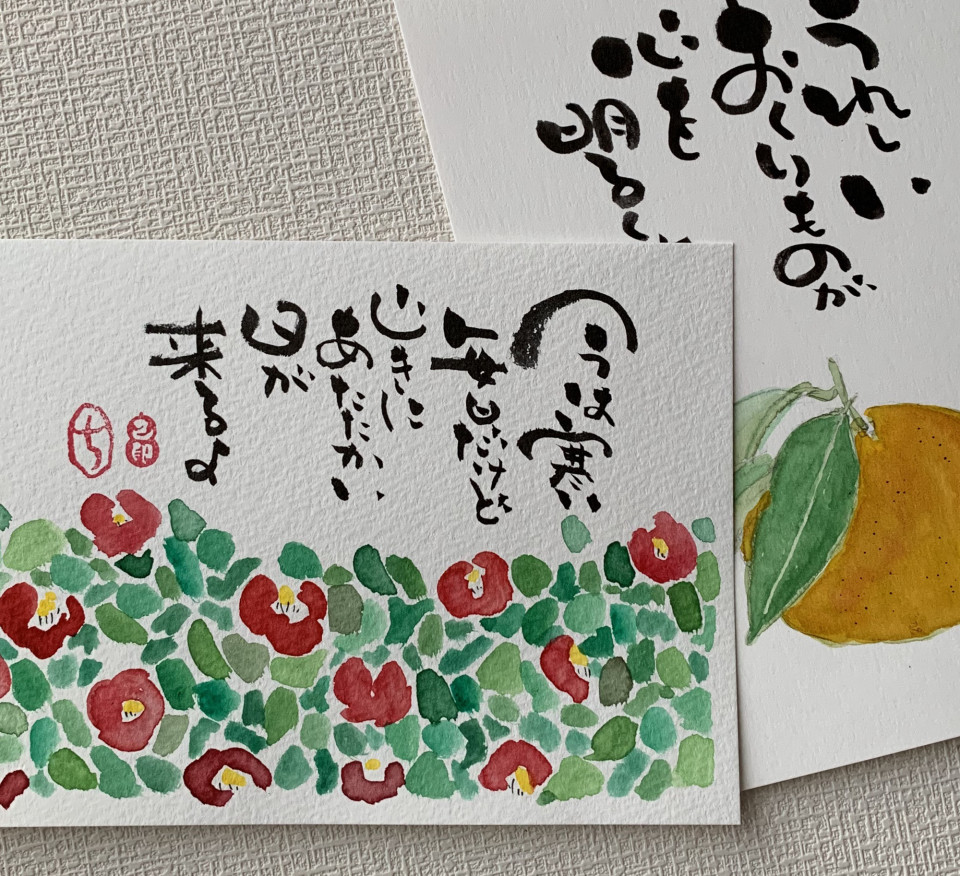 今は寒い
毎日だけど
じきに
あたたかい
日が
来るよ
うれしい
おくりものが
心を
明るく